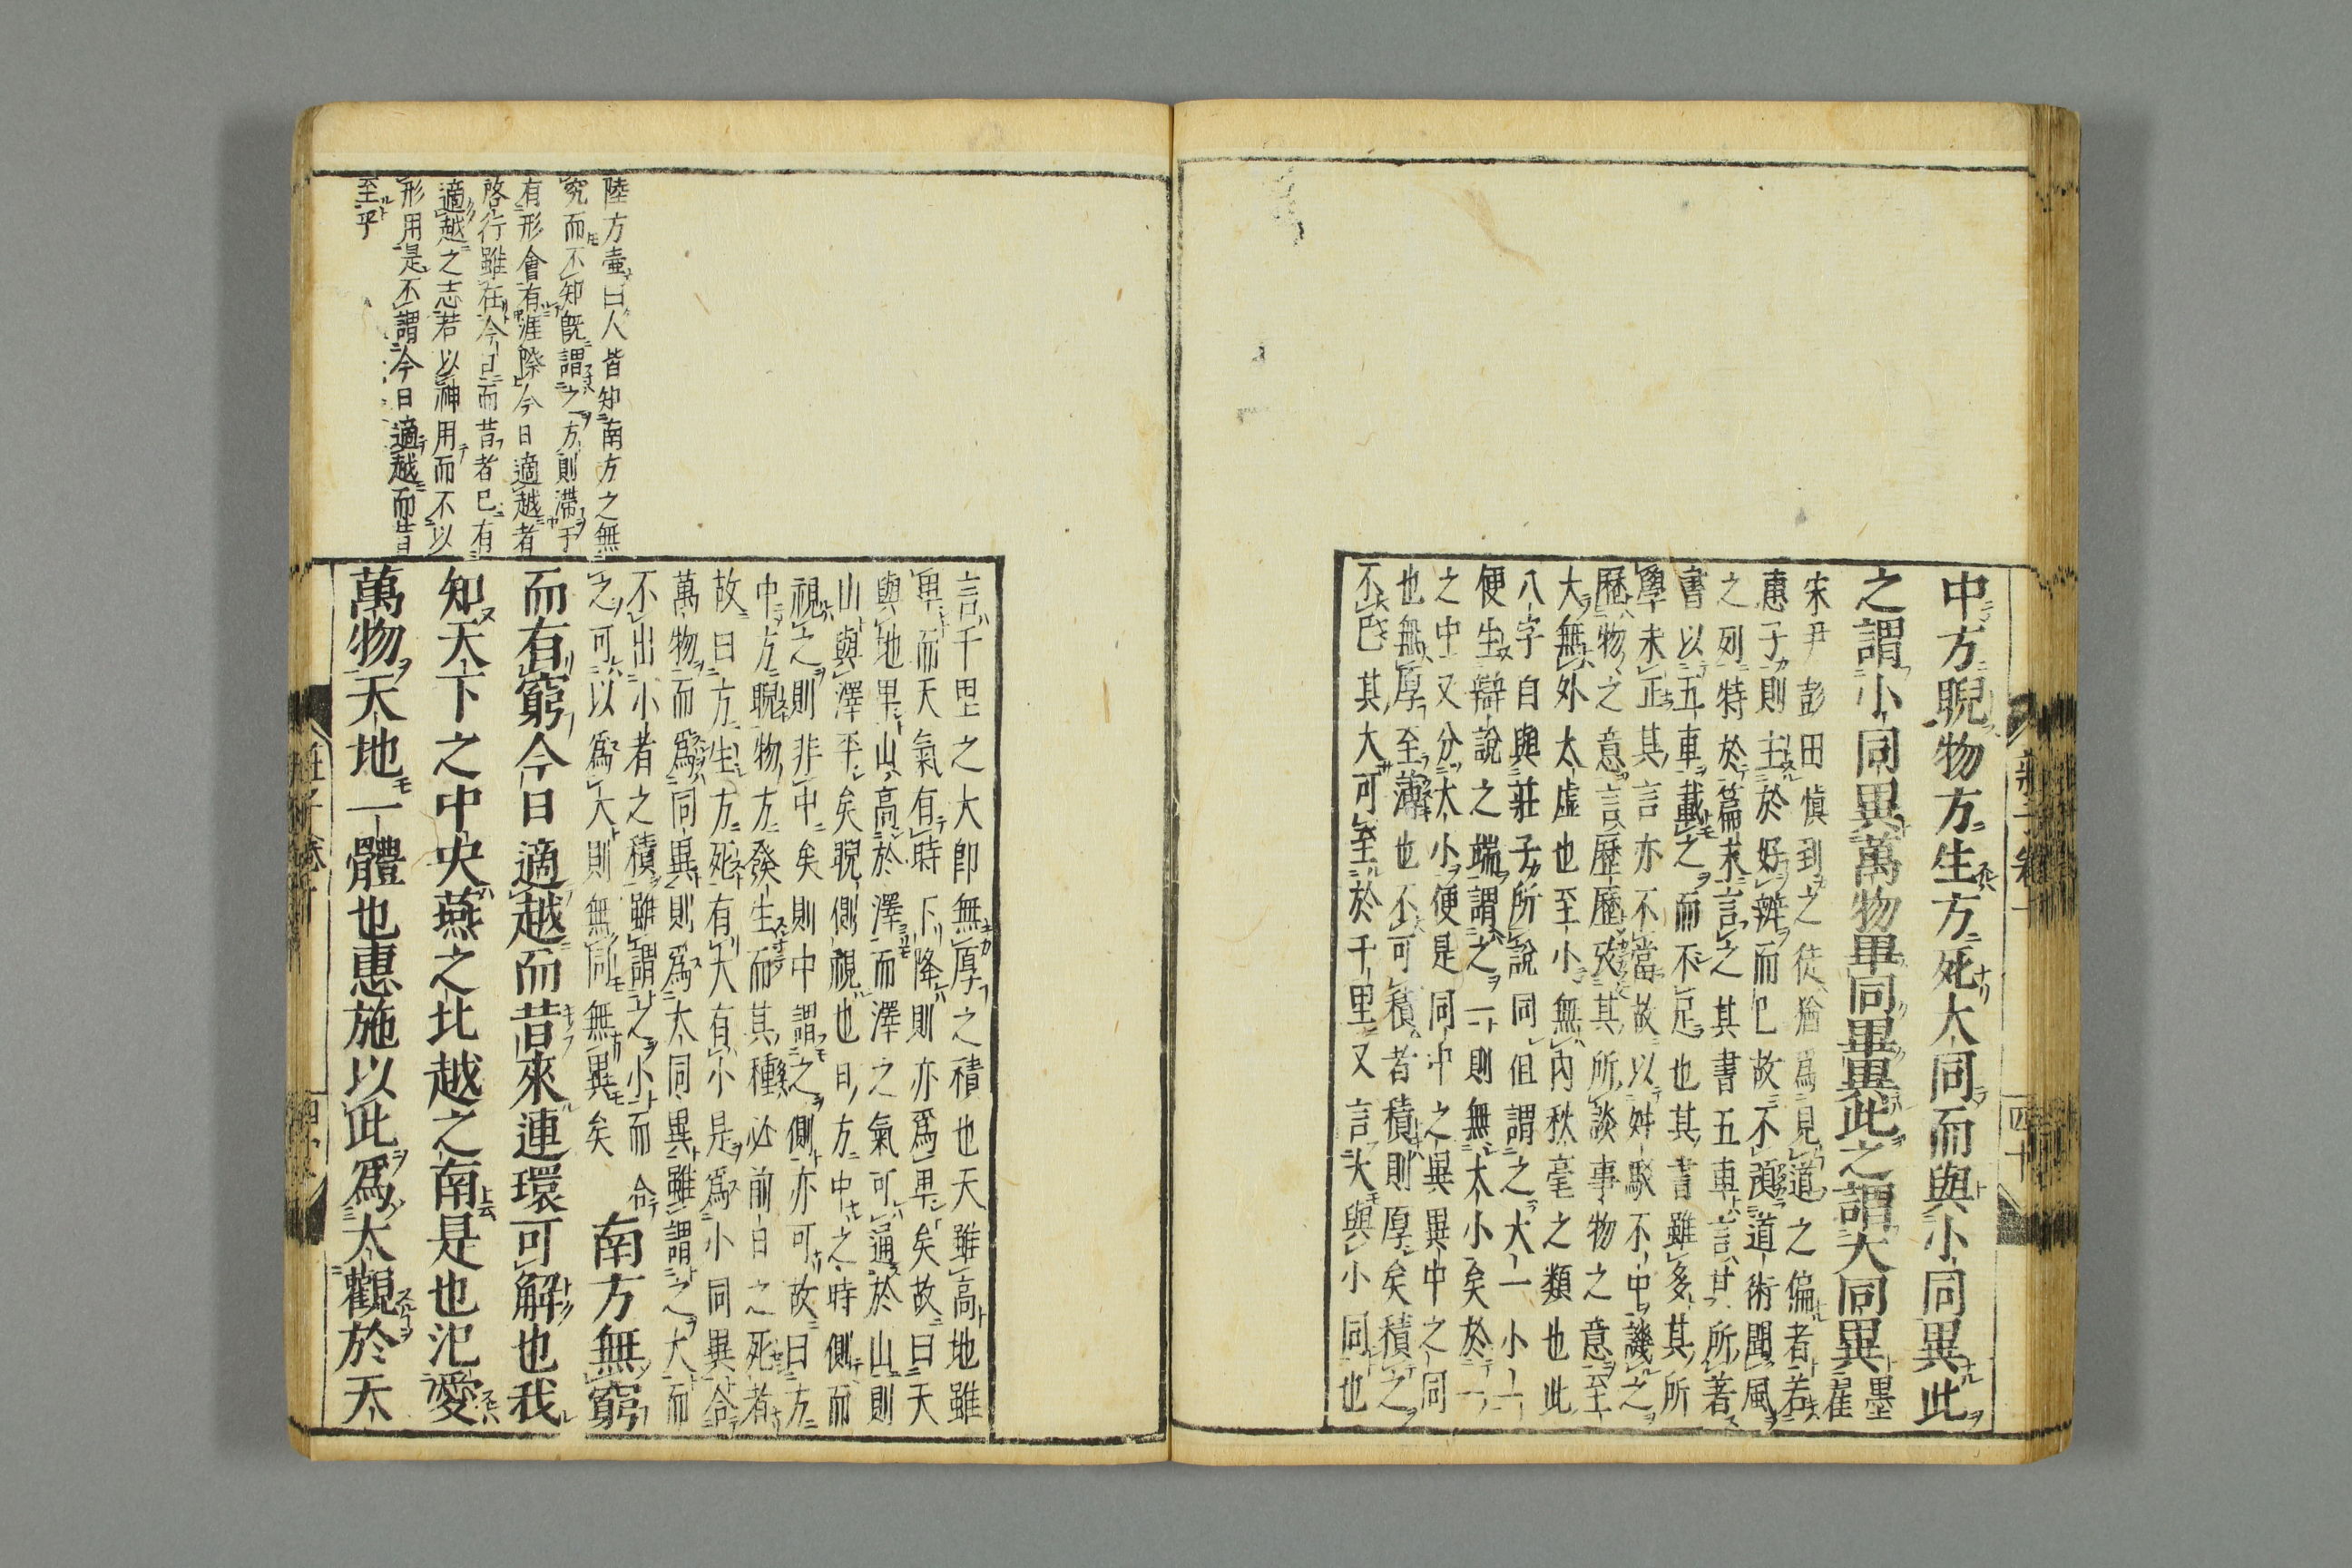 中方睨物方生方死大同而與小同異此
之謂小同異萬物畢同畢異此之謂大同異墨翟
宋尹彭田慎到之徒猶爲見道之偏者若
惠子則主於好辯而已故不預道術聞風
之列特於篇末言之其書五車言其所著
書以五車載之而不足也其書雖多其所
學未正其言亦不當故以舛駁不中譏之
歷物之意言歷歷攷其所談事物之意至
大無外太虚也至小無內秋毫之類也此
八字自與莊子所說同但謂之大一小一
便生辯說之端謂之一則無大小矣於一
之中又分大小便是同中之異異中之同
也無厚至薄也不可積者積則厚矣積之
不已其大可至於千里又言大與小同也
言千里之大即無厚之積也天雖高地雖
卑而天氣有時下降則亦爲卑矣故曰天
與地卑山高於澤而澤之氣可通於山則
山與澤平矣睨側視也日方中之時側而
視之則非中矣則中謂之側亦可故曰方
中方睨物方發生而其種必前日之死者
故曰方生方死有大有小是爲小同異合
萬物而爲同異則爲大同異雖謂之大而
不出小者之積雖謂之小而合
之可以爲大則無同無異矣
南方無窮
而有窮今日適越而昔來連環可解也我
知天下之中央燕之北越之南是也氾愛
萬物天地一體也惠施以此爲大觀於天
陸方壷曰人皆知南方之無
究而不知既謂之方則滯于
有形會有涯際今日適越者
啓行雖在今日而昔者已有
適越之志若以神用而不以
形用是不謂今日適越而昔
至乎
莊子卷十
四十